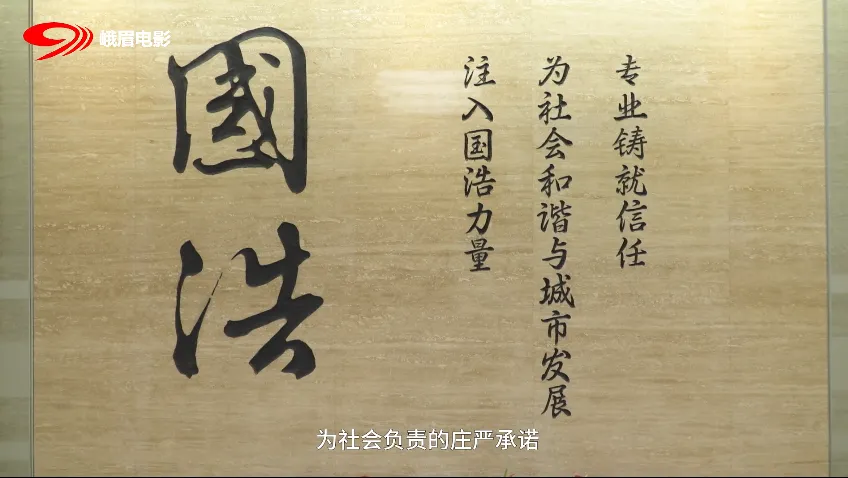 峨眉电影
國浩
专业铸就信任
为社会和谐与城市发展
注入国浩力量
为社会负责的庄严承诺